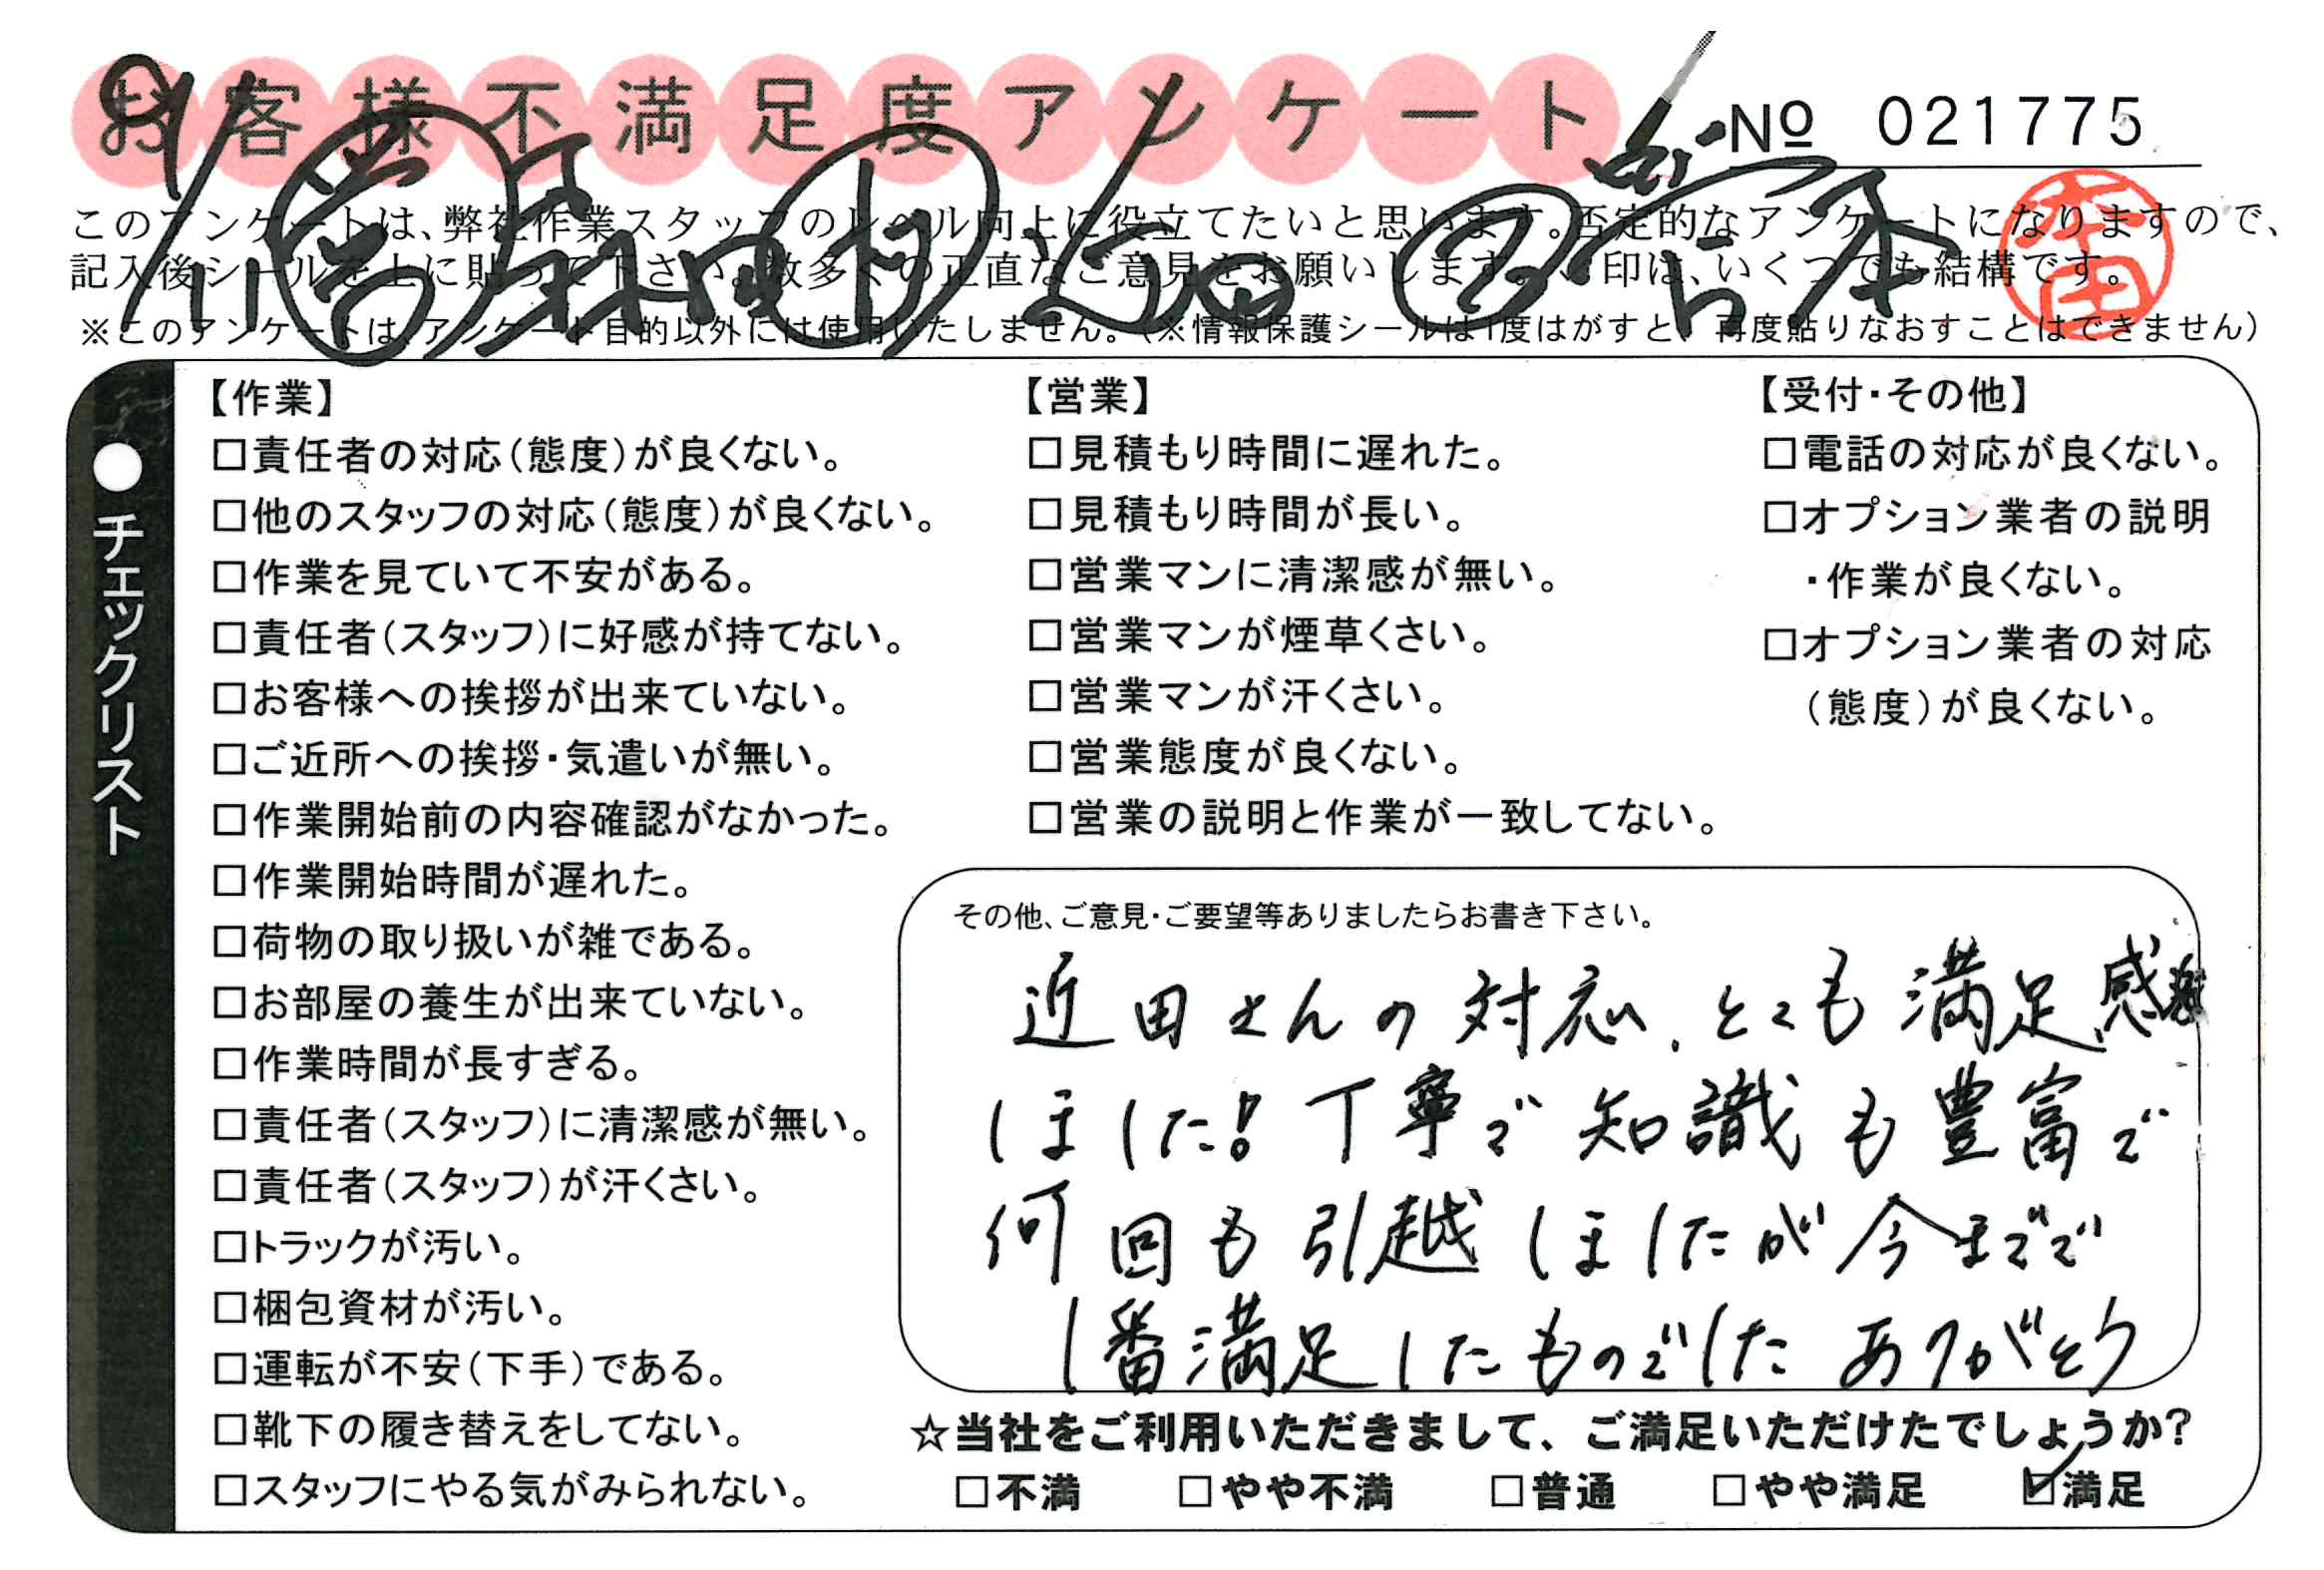 お客様不満足度アンケート
№ 021775
このアンケートは、弊社作業スタッフのレベル向上に役立てたいと思います。否定的なアンケートになりますので、
記入後シールを上に貼って下さい。数多くの正直なご意見をお願いします。✓印は、いくつでも結構です。
※このアンケートは、アンケート目的以外には使用いたしません。（※情報保護シールは1度はがすと、再度貼りなおすことはできません）
9/11 営 近田
●チェックリスト
【作業】
□責任者の対応（態度）が良くない。
□他のスタッフの対応（態度）が良くない。
□作業を見ていて不安がある。
□責任者（スタッフ）に好感が持てない。
□お客様への挨拶が出来ていない。
□ご近所への挨拶・気遣いが無い。
□作業開始前の内容確認がなかった。
□作業開始時間が遅れた。
□荷物の取り扱いが雑である。
□お部屋の養生が出来ていない。
□作業時間が長すぎる。
□責任者（スタッフ）に清潔感が無い。
□責任者（スタッフ）が汗くさい。
□トラックが汚い。
□梱包資材が汚い。
□運転が不安（下手）である。
□靴下の履き替えをしてない。
□スタッフにやる気がみられない。
【営業】
□見積もり時間に遅れた。
□見積もり時間が長い。
□営業マンに清潔感が無い。
□営業マンが煙草くさい。
□営業マンが汗くさい。
□営業態度が良くない。
□営業の説明と作業が一致してない。
【受付・その他】
□電話の対応が良くない。
□オプション業者の説明
・作業が良くない。
□オプション業者の対応
（態度）が良くない。
その他、ご意見・ご要望等ありましたらお書き下さい。
近田さんの対応、とても満足感激
しました！丁寧で知識も豊富で
何回も引越しましたが今までで
1番満足したものでした ありがとう
☆当社をご利用いただきまして、ご満足いただけたでしょうか？
□不満 □やや不満 □普通 □やや満足 ☑満足